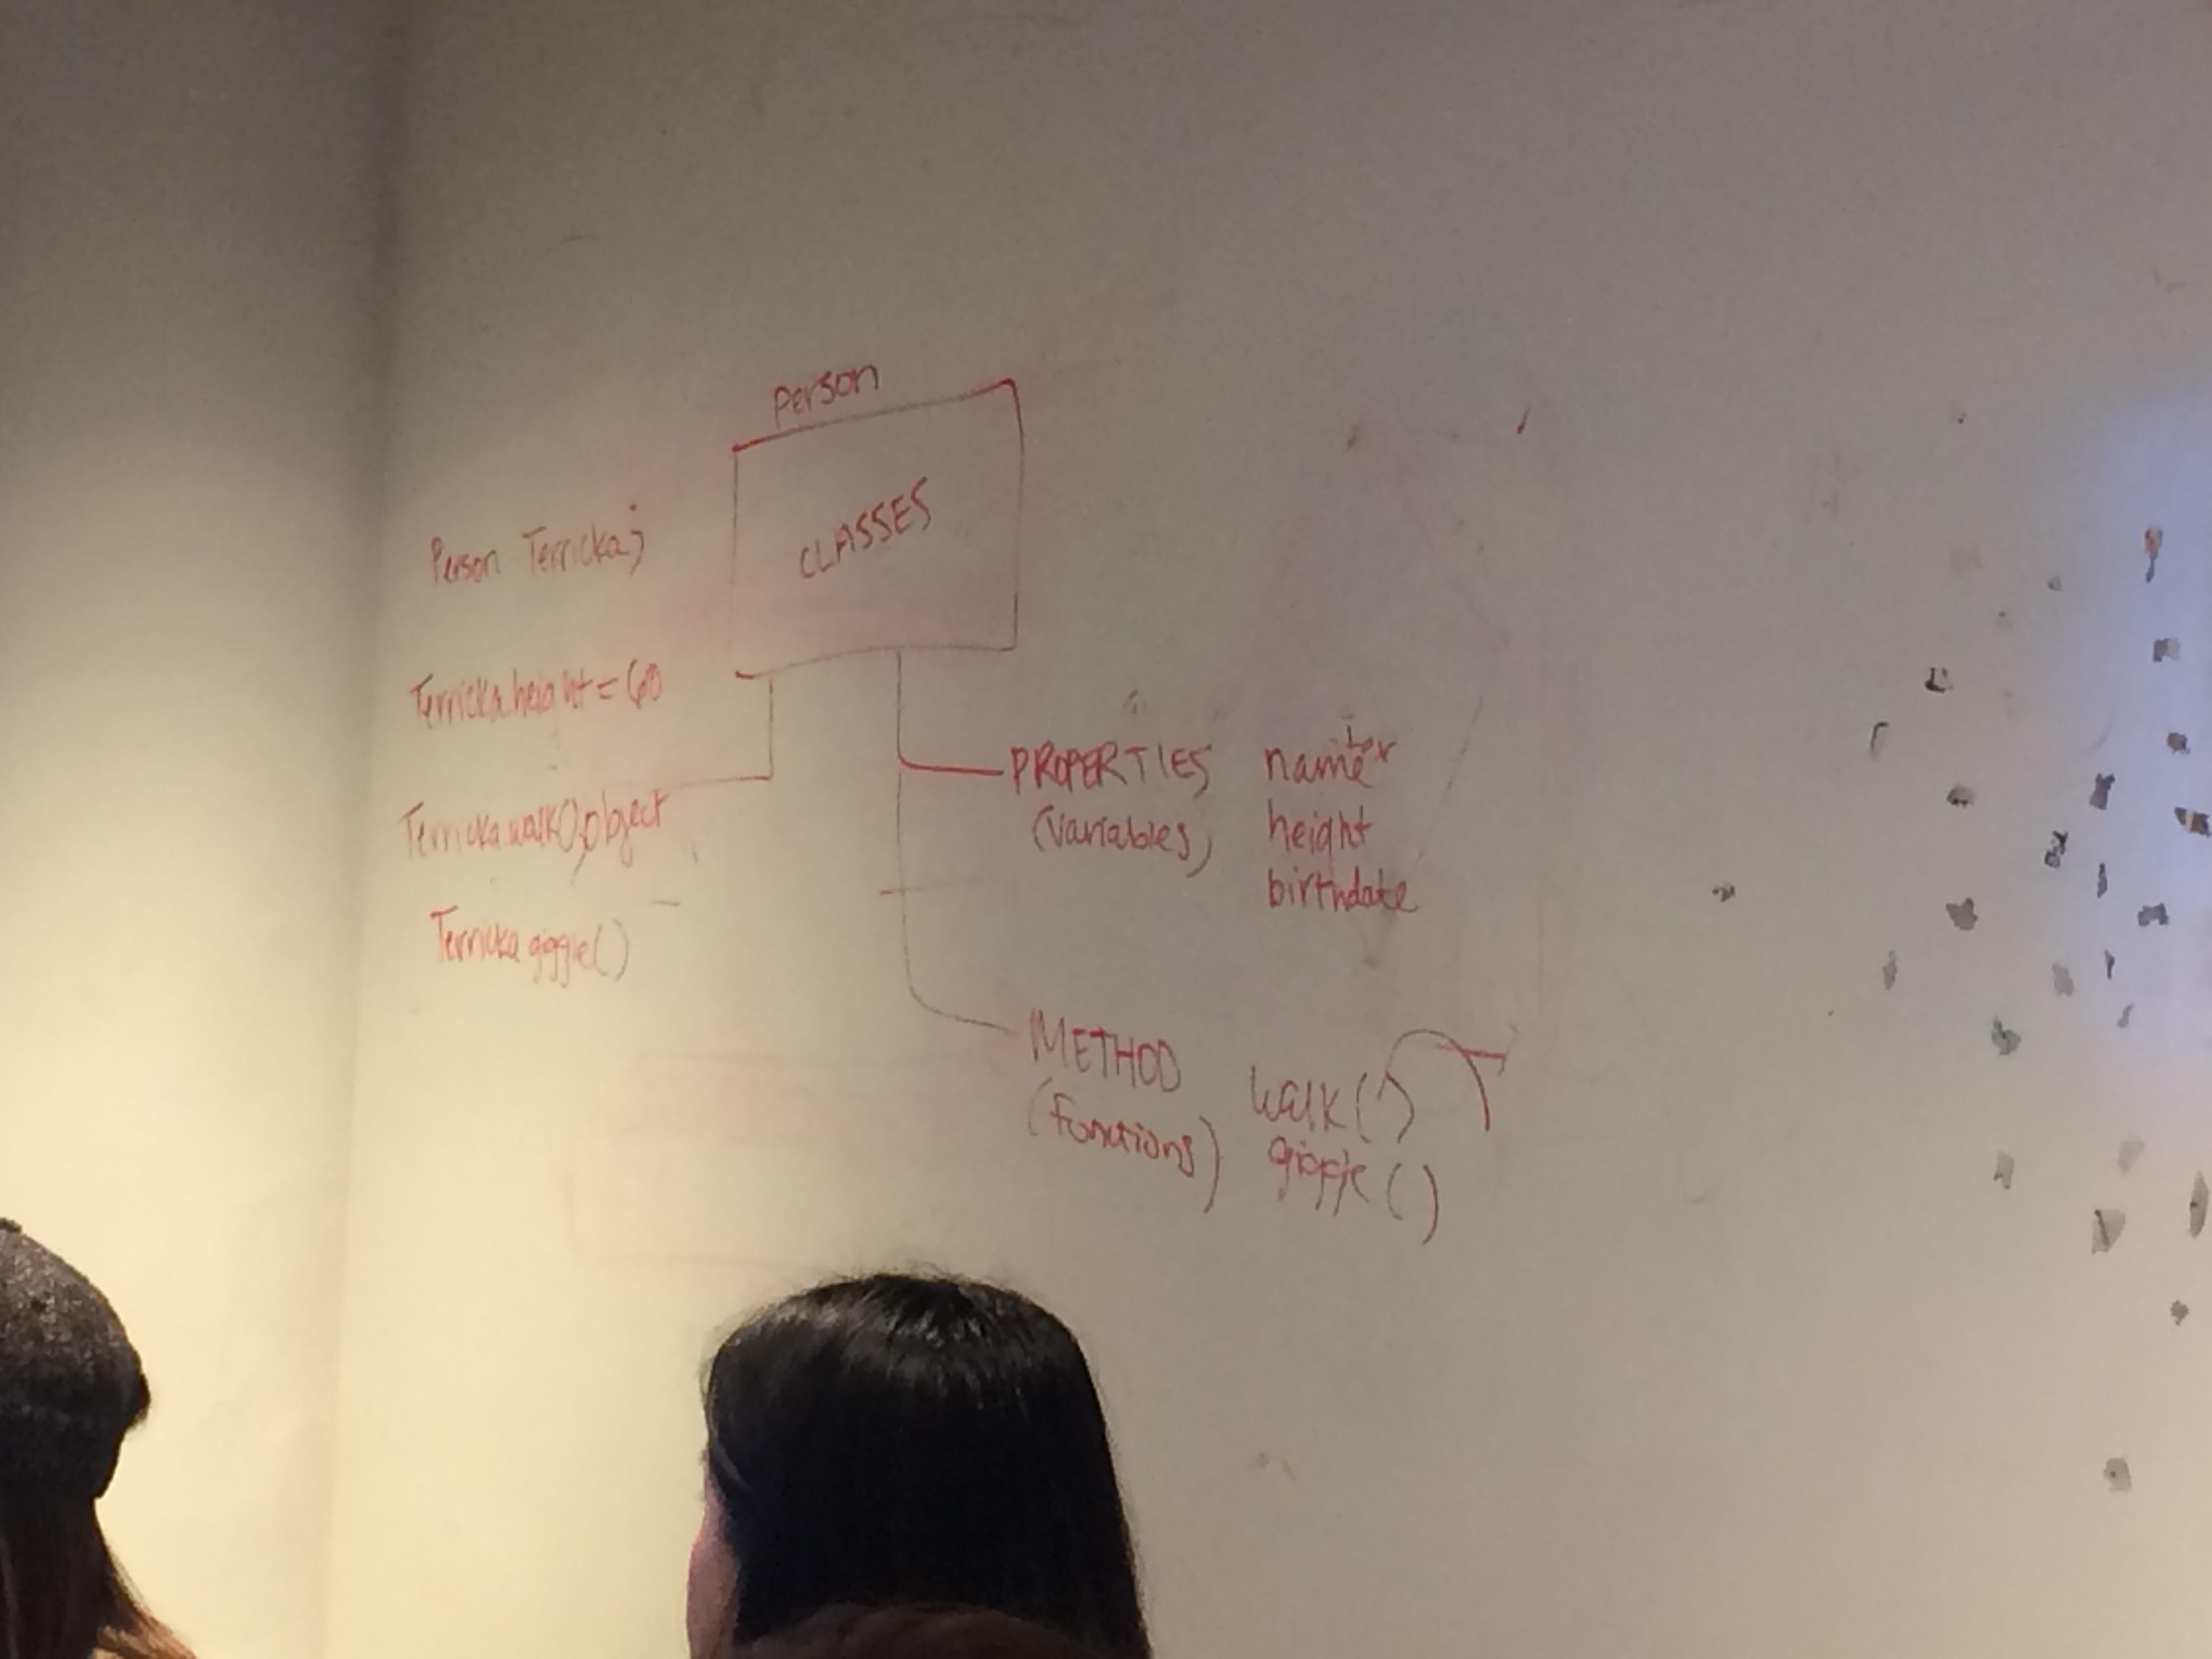 person
CLASSES
Person Terricka;
Terricka.height = 60
Terricka.walk() object
Terricka.giggle()
PROPERTIES name
(variables) height
birthdate
METHOD walk()
(Functions) giggle()